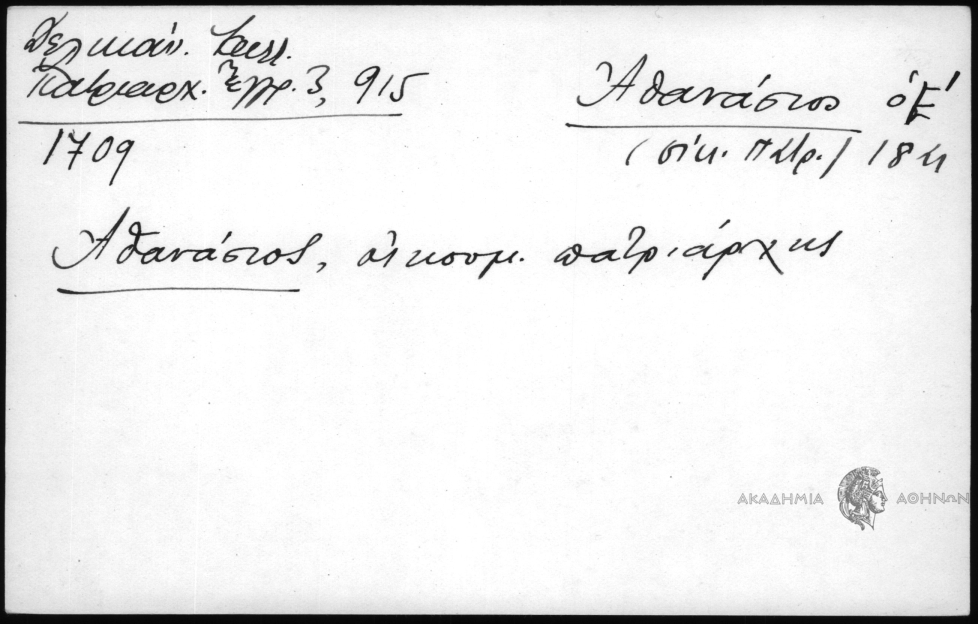 Δελικάν. Καλλ.
Πατριαρχ. Ἔγγρ. 3, 915
1709
Ἀθανάσιος ὁ Ε'
(οἰκ. Πατρ.) 18
Ἀθανάσιος, οἰκουμ. πατριάρχης
ΑΚΑΔΗΜΙΑ ΑΘΗΝΩΝ